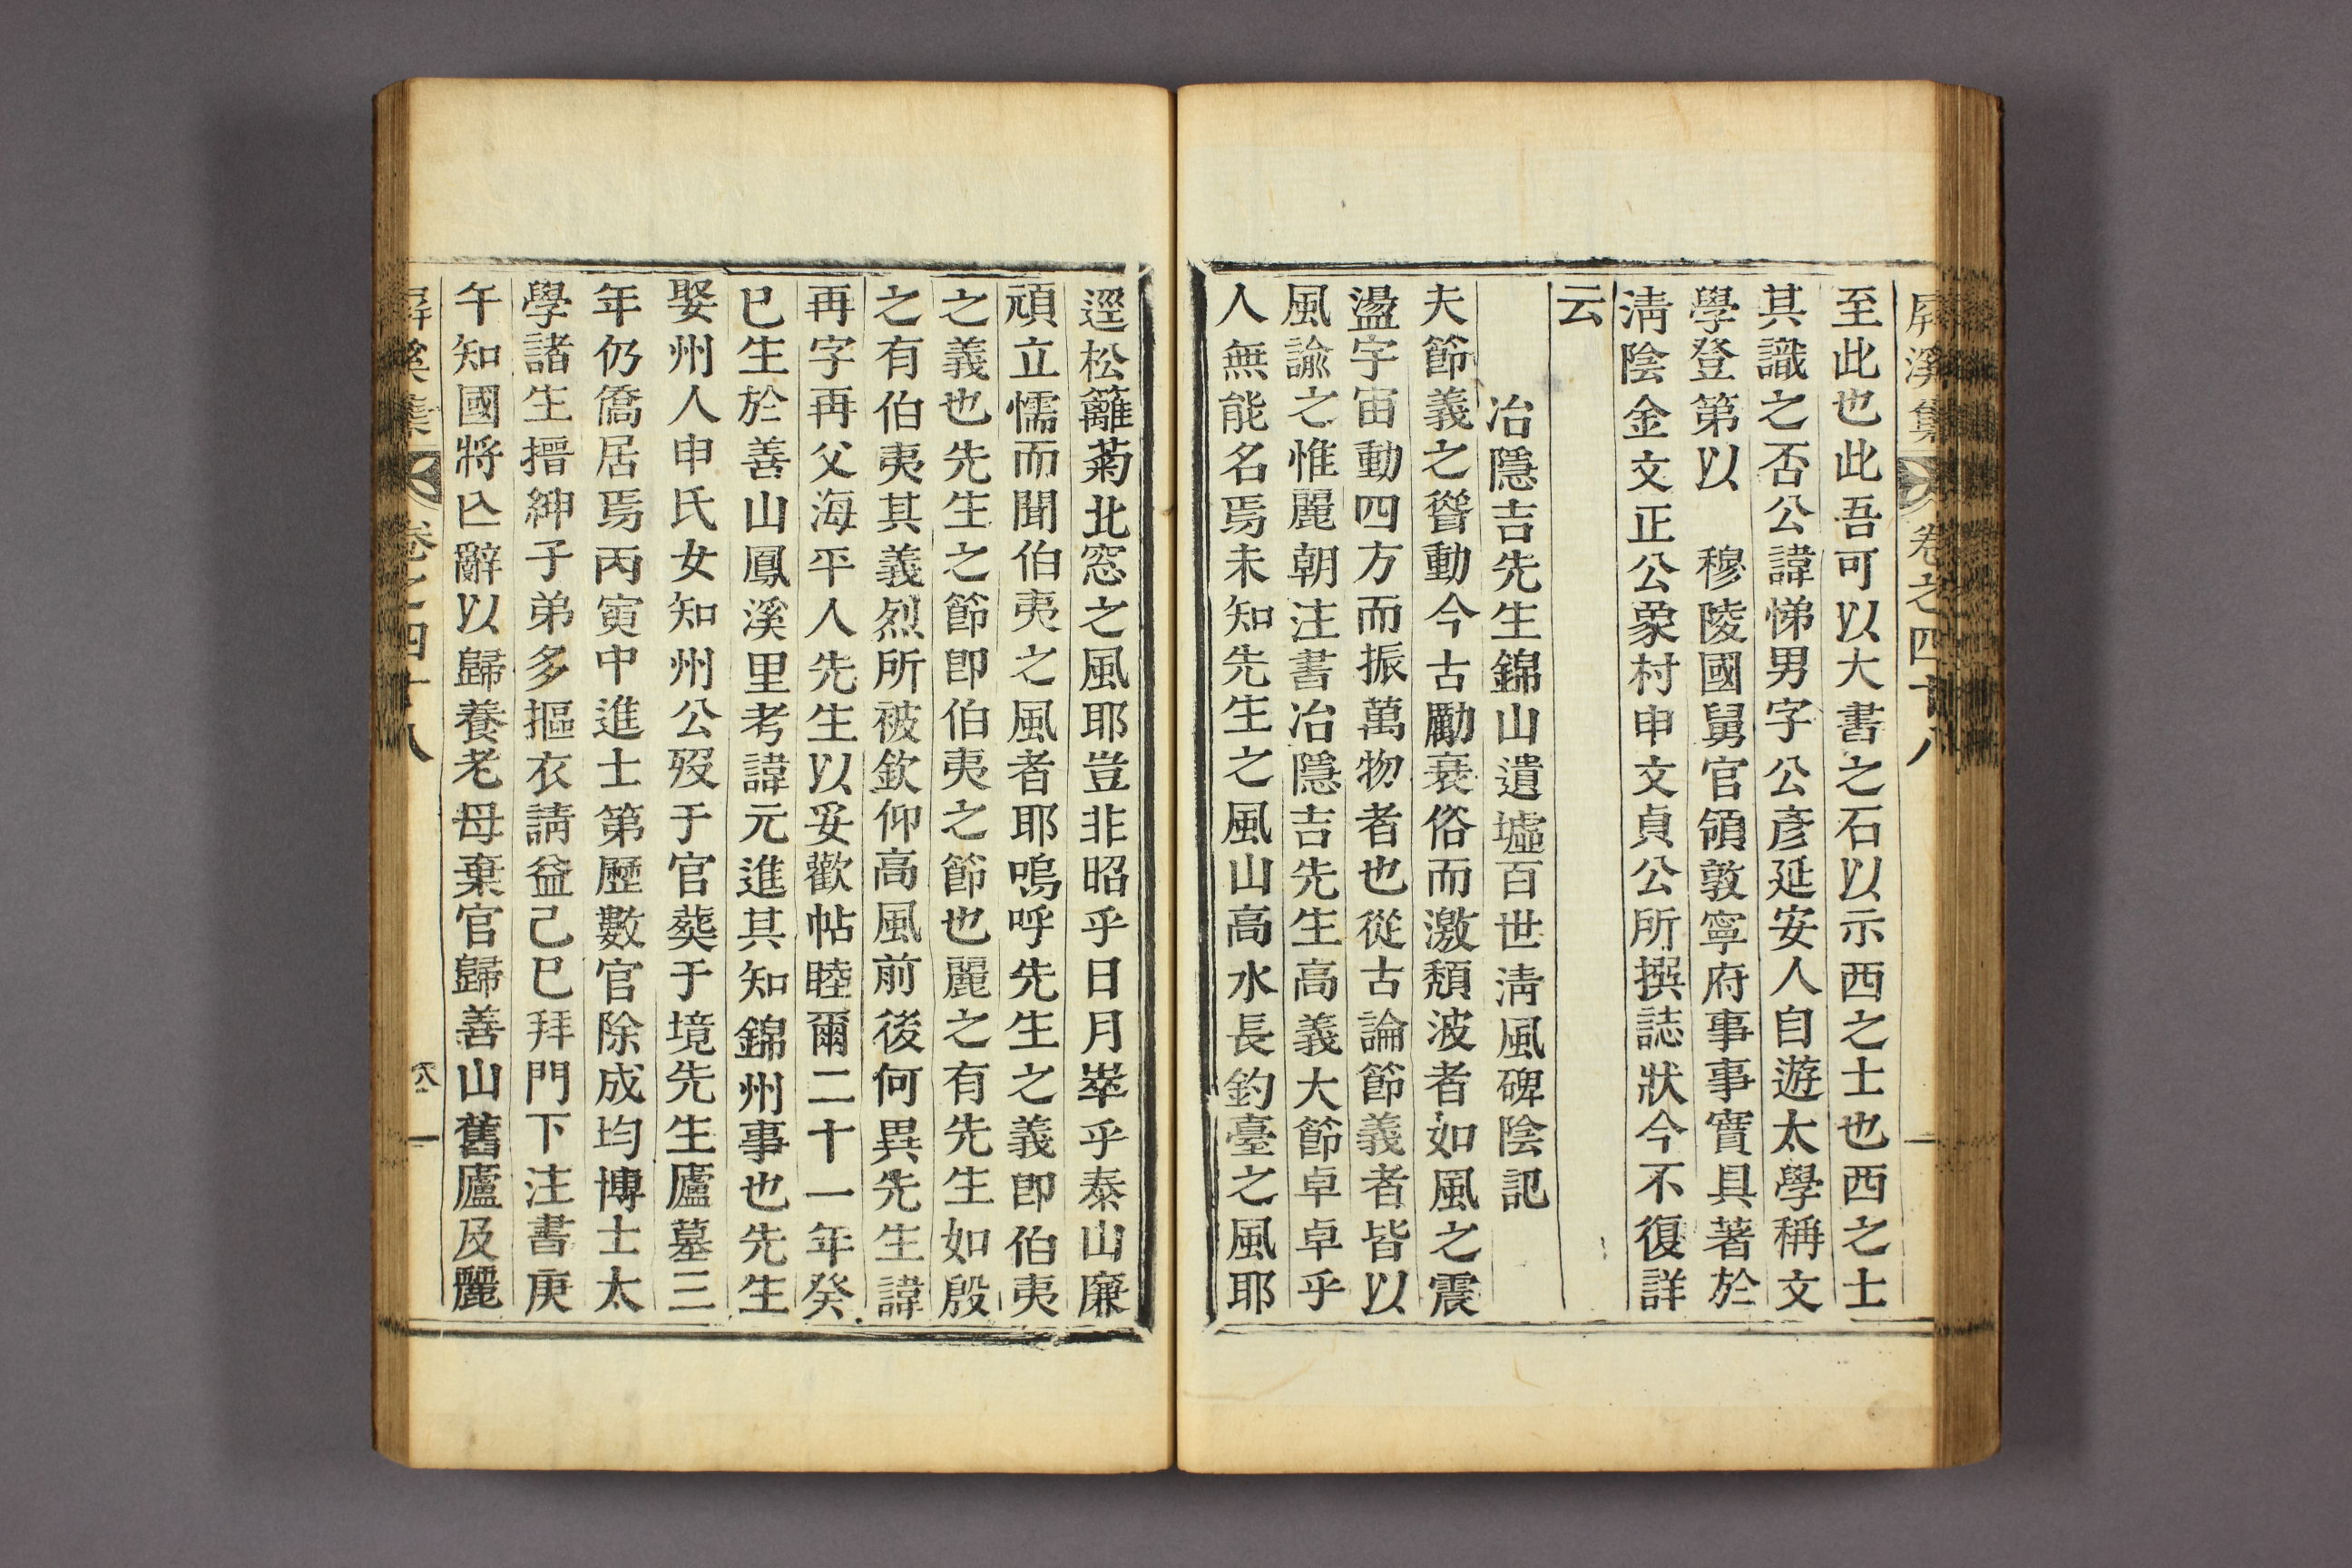 屛溪集 卷之四十八
至此也此吾可以大書之石以示西之士也西之士
其識之否公諱悌男字公彥延安人自遊太學稱文
學登第以 穆陵國舅官領敦寧府事事實具著於
淸陰金文正公象村申文貞公所撰誌狀今不復詳
云
冶隱吉先生錦山遺墟百世淸風碑陰記
夫節義之聳動今古勵衰俗而激頹波者如風之震
盪宇宙動四方而振萬物者也從古論節義者皆以
風諭之惟麗朝注書冶隱吉先生高義大節卓卓乎
人無能名焉未知先生之風山高水長釣臺之風耶
逕松籬菊北窓之風耶豈非昭乎日月崒乎泰山廉
頑立懦而聞伯夷之風者耶嗚呼先生之義卽伯夷
之義也先生之節卽伯夷之節也麗之有先生如殷
之有伯夷其義烈所被欽仰高風前後何異先生諱
再字再父海平人先生以妥歡帖睦爾二十一年癸
巳生於善山鳳溪里考諱元進其知錦州事也先生
娶州人申氏女知州公歿于官葬于境先生廬墓三
年仍僑居焉丙寅中進士第歷數官除成均博士太
學諸生搢紳子弟多摳衣請益己巳拜門下注書庚
午知國將亾辭以歸養老母棄官歸善山舊廬及麗
屛溪集 卷之四十八 一